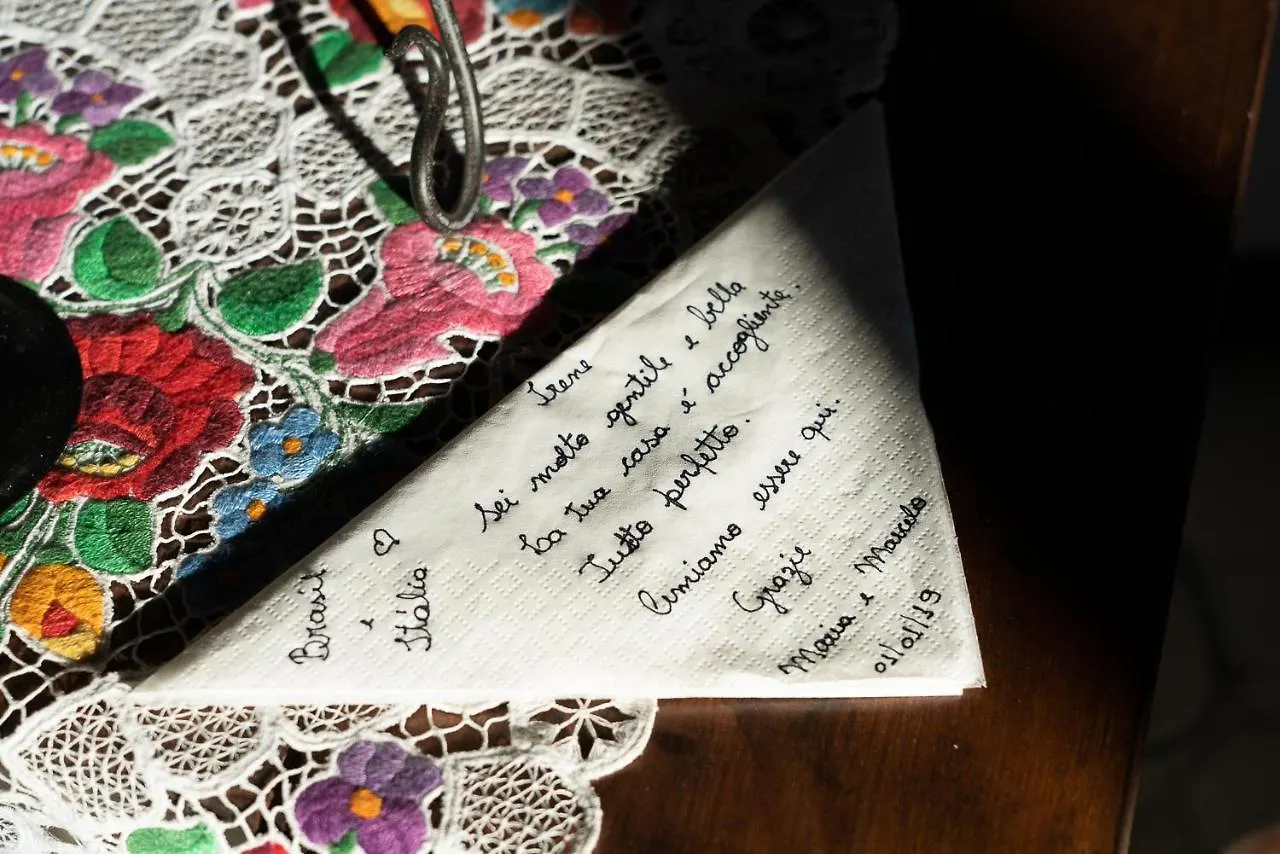 Irene
Sei molto gentile e bella
La tua casa é accogliente.
Tutto perfetto.
Amiamo essere qui.
Grazie
Maria e Marcelo
01/01/19
Brasil ♡
e
Itália